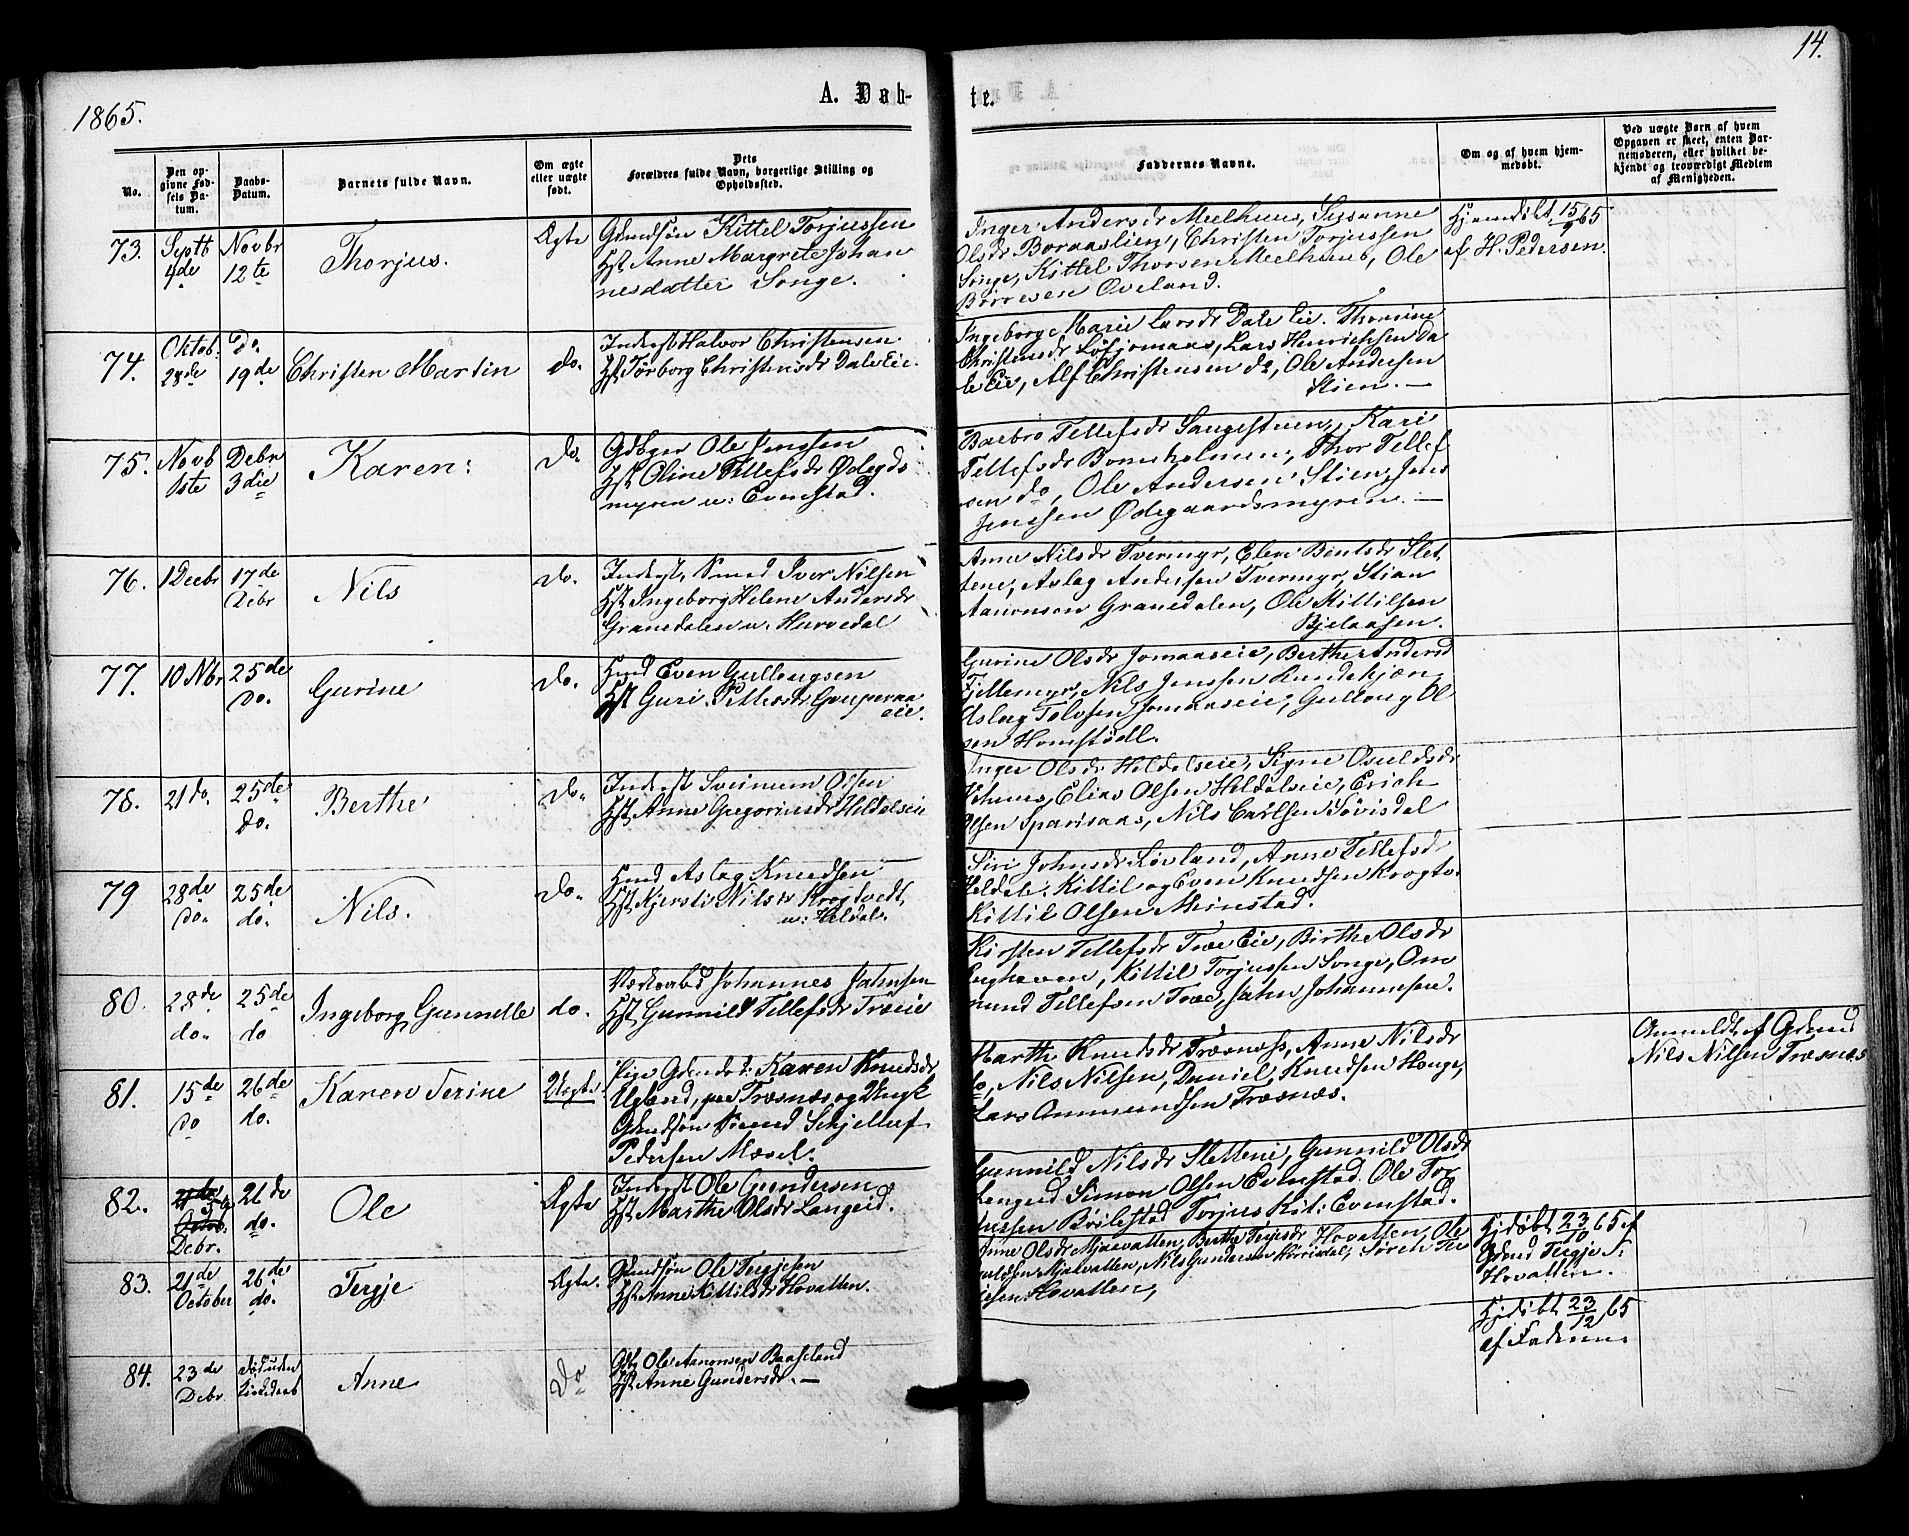 14.
1865.
A. Døb-
te.
No.
Den op-
givne Fød-
sels Da-
tum.
Daabs-
Datum.
Barnets fulde Navn.
Om ægte
eller uægte
født.
Dets
Forældres fulde Navn, borgerlige Stilling og
Opholdssted.
Faddernes Navne.
Om og af hvem hjem-
medøbt.
Ved uægte Børn af hvem
Opgaven er skeet, enten Bar-
nemoderen, eller hvilket be-
kjendt og troværdigt Medlem
af Menigheden.
73.
Septb
4de
Novbr
12te
Thorjus.
Ægte
Gdmdsön Kittel Torjussen
Hst Anne Margrete Johan
nesdatter Songe.
Inger Andersdr Meelhuus, Susanne
Olsdr Boraaslien, Christen Torjussen
Songe, Kittel Thorsen Meelhuus, Ole
Børresen Øveland.
Hjemdöbt 15/9 65
af H. Pedersen.
74.
Oktob.
28de
Do.
19de
Christen Martin
do.
Inderst Halvor Christensen
Hst Torborg Christensdr Dale Eie.
Ingeborg Marie Larsdr Dale Eie. Thomine
Christensdr Løsjomaas, Lars Henrichsen Da
le Eie, Alf Christensen do, Ole Andersen
Stien. —
75.
Novb
1ste
Debr
3die
Karen.
Do.
Gdbger Ole Jenssen
Hst Oline Tellefsdr Ødegds
myren u. Evenstad.
Barbro Tellefsdr Saugestuen, Kari
Tellefsdr Bomsholmen, Thor Tellef
sen do, Ole Andersen Stien, Jens
Jenssen Ødegaardsmyren. —
76.
1 Decbr
17de
Debr
Nils
Do.
Inderst, Smed Iver Nilsen
Hst Ingeborg Helene Andersdr
Granedalen u. Hurvedal
Anne Nilsdr Tvermyr, Elen Bentsdr Slet
tene, Aslag Andersen Tvermyr, Stian
Aanonsen Granedalen, Ole Kittilsen
Bjelaasen.
77.
10 Nbr
25de
Do.
Gurine
Do.
Hmd Even Gullougsen
Hst Guri Pettersdr Gouperaa
eie.
Gurine Olsdr Jomaaseie, Berthe Andersd
Fjellemyr, Nils Jenssen Rundekjøn,
Aslag Tolvsen Jomaaseie, Gulloug Ol
sen Homstødl.
78.
21 do.
25de
Do.
Berthe
Do.
Inderst Sveinum Olsen
Hst Anne Gregoriusdr Heldaleie
Inger Olsdr Heldaleie, Signe Osuldsdr
Elias Olsen Heldaleie, Erich
Olsen Sparisaas, Nils Carlsen Søvisdal
79
28de
Do.
25de
do.
Nils.
Do.
Hmd Aslag Knudsen
Hst Kjersti Nilsdr Krogtvedt,
u. Heldal.
Siri Johnsdr Løvland, Anne Tellefsdr
Heldal, Kittil og Even Knudsen Krogtv.
Kittil Olsen Minstad.
80.
28de
do.
25de
do
Ingeborg Gunnelle
do.
Johannes Jahnsen
Hst Gunnild Tellefsdr Træeie
Kirsten Tellefsdr Træ Eie, Birthe Olsdr
Enghaven, Kittil Torjussen Songe, Om
mund Tellefsen Træ, Jahn Johannesen.
81.
15de
Do
26de
do.
Karen Terine
Uægte.
Pige Gdmdst. Karen Knudsdr
Ugland, paa Træsnæs og Ungk
Gdmdsön Svend Schjelluf
Pedersen Mosel.
Marthe Knudsdr Træsnæs, Anne Nilsdr
do, Nils Nilsen, Daniel Knudsen Houge,
Lars Ommundsen Træsnæs.
Anmeldt af Gdmd
Nils Nilsen Træsnæs
82.
Debr.
26de
do.
Ole
Ægte
Inderst Ole Gundersen
Hst Marthe Olsdr Langeid.
Gunnild Nilsdr Slettene, Gunnild Olsdr
Langeid Simon Olsen Evenstad Ole Tor
jussen Bøilestad Torjus Kit: Evenstad.
83.
21de
October
26de
do.
Tergje
Ægte.
Gdmdsön Ole Tergjesen
Hst Anne Kittilsdr Hovatten.
Anne Olsdr Mjaavatten, Berthe Terjesdr Hovatten, Ole
Mjaavatten, Nils Gundersen Hørrisdal, Søren Ter
jesen Hovatten,
Hjdöbt 23/10 65 af
Gdmd Tergje T.
Hovatten.
84.
23de
Debr.
Anne
Do
Gdb Ole Aanonsen Baaseland
Hst Anne Gundersdr. —
Hjdöbt 23/12 65
af Faderen.